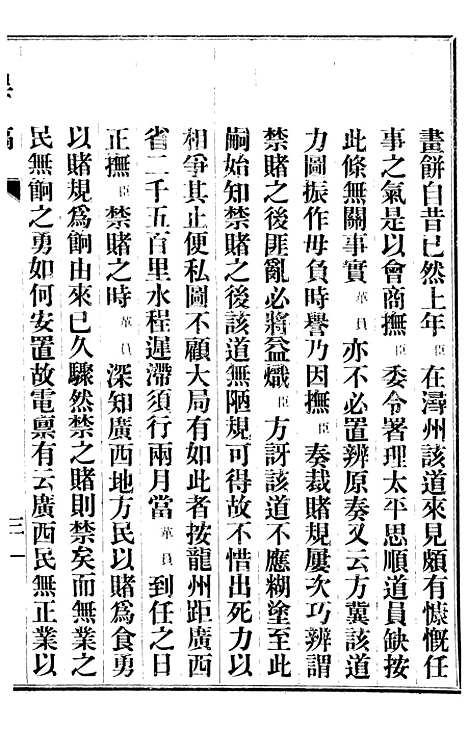 畫餅自昔已然上年臣在潯州該道來見頗有慷慨任
事之氣是以會商撫臣委令署理太平思順道員缺按
此條無關事實革員亦不必置辨原奏又云方冀該道
力圖振作毋負時譽乃因撫臣奏裁賭規屢次巧辨謂
禁賭之後匪亂必將益熾臣方訝該道不應糊塗至此
嗣始知禁賭之後該道無陋規可得故不惜出死力以
相爭其止便私圖不顧大局有如此者按龍州距廣西
省二千五百里水程遲滯須行兩月當革員到任之日
正撫臣禁賭之時革員深知廣西地方民以賭為食勇
以賭規為餉由來已久驟然禁之賭則禁矣而無業之
民無餉之勇如何安置故電稟有云廣西民無正業以
三一